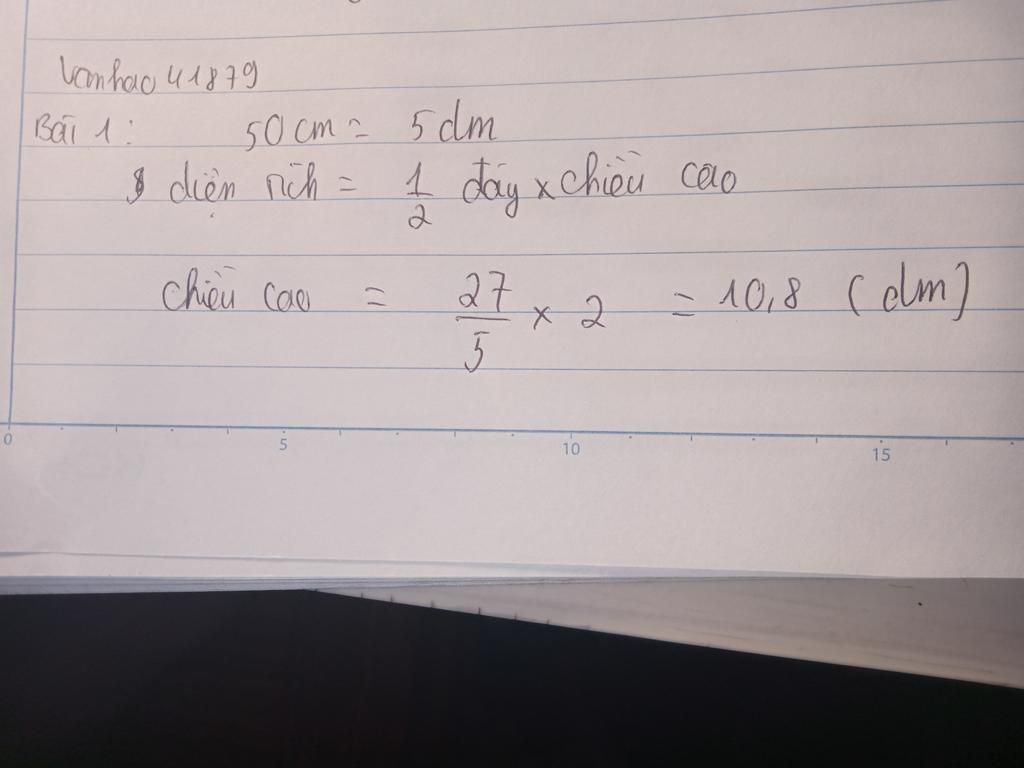 vanhao41879
Bài 1: 50 cm = 5 dm
diện tích = 1/2 đáy x chiều cao
chiều cao = 27/5 x 2 = 10,8 (dm)
0 5 10 15